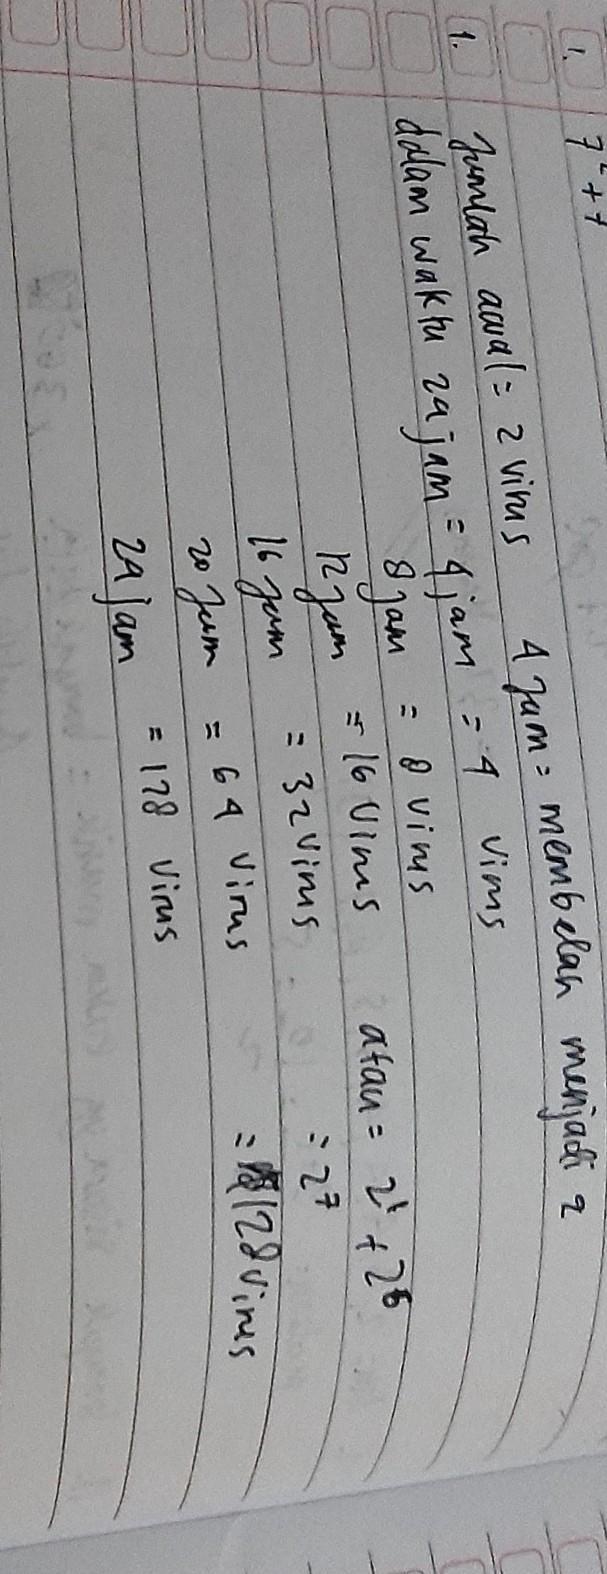 1. 7² + 7
1. Jumlah awal = 2 virus 4 Jam = membelah menjadi 2
dalam waktu 24 jam = 4 jam = 4 virus
8 jam = 8 virus
12 jam = 16 virus atau = 2¹ + 2⁶
16 jam = 32 virus = 2⁷
20 jam = 64 virus = 128 virus
24 jam = 128 virus